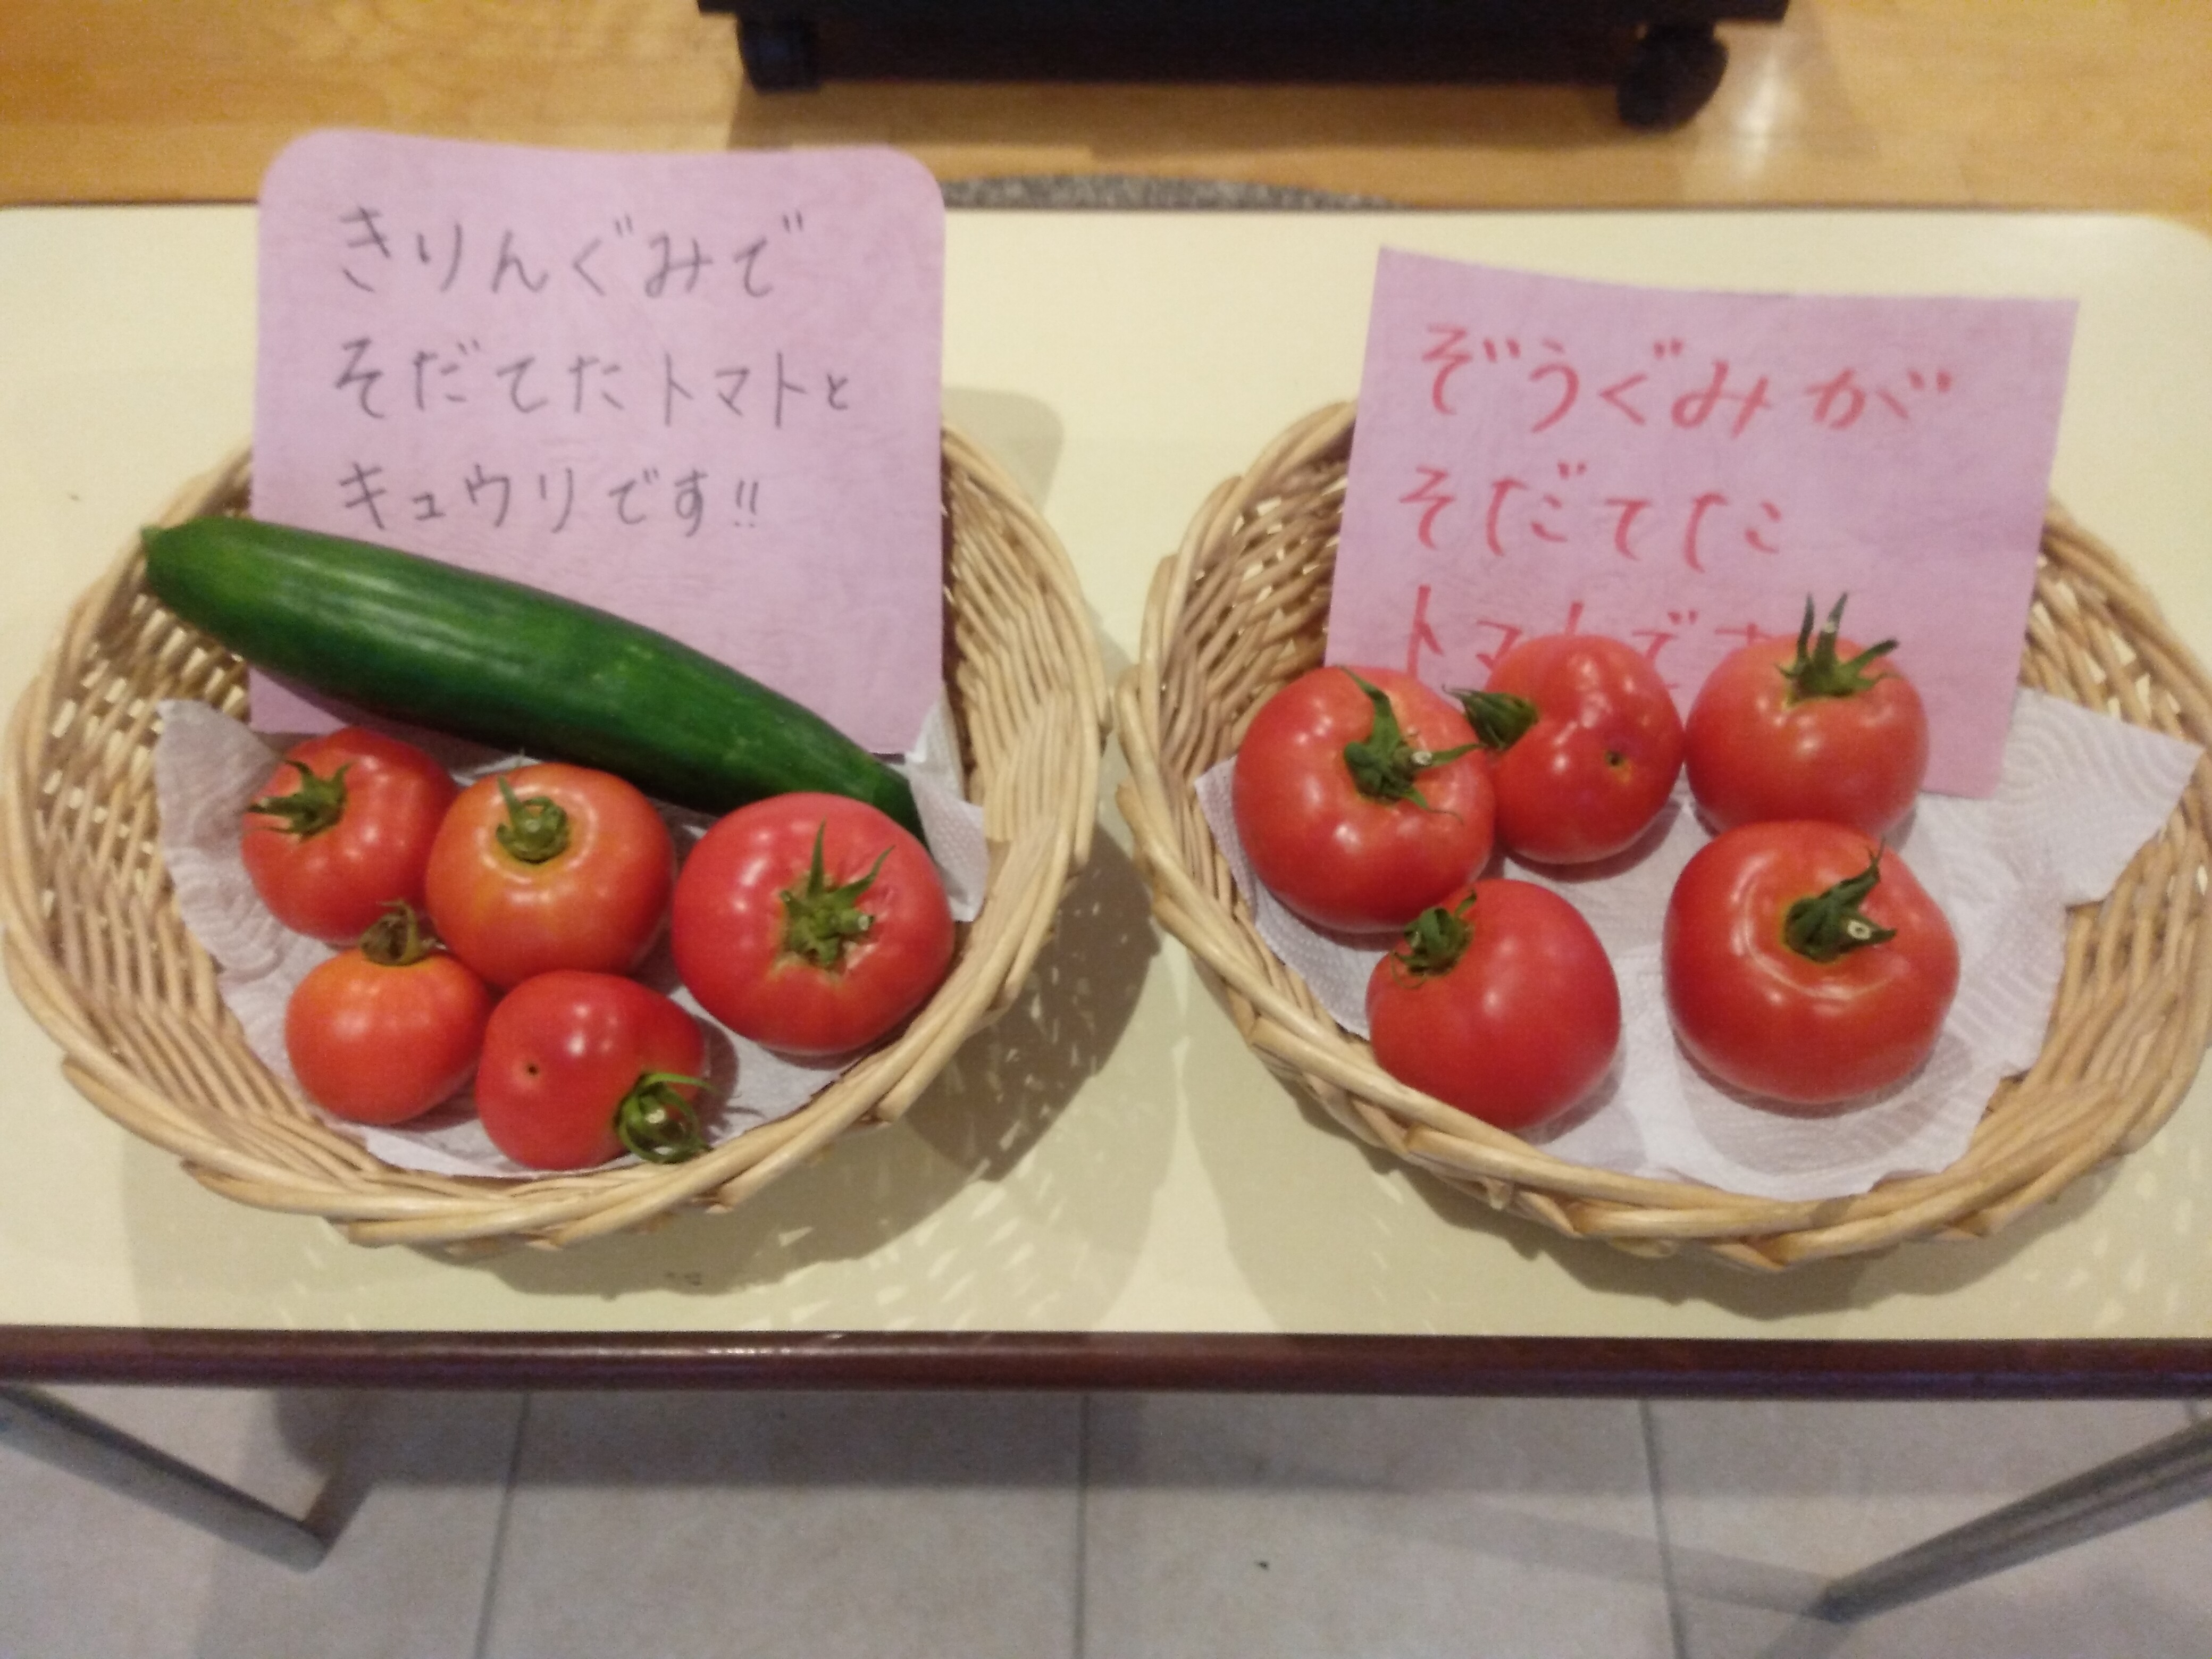 きりんぐみで
そだてたトマトと
キュウリです!!
ぞうぐみが
そだてた
トマトです